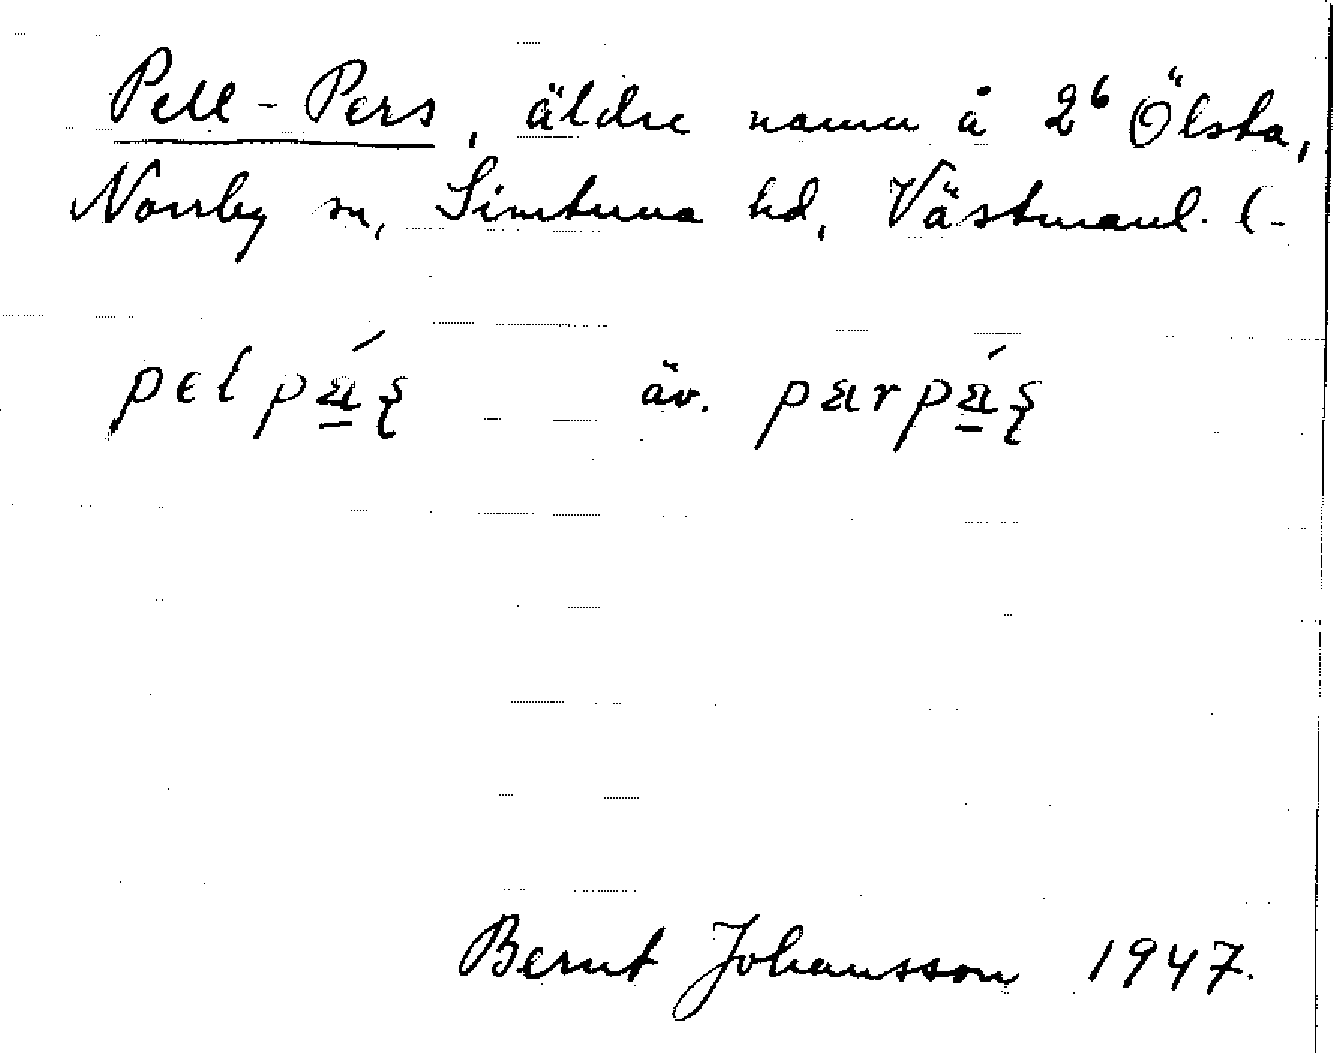 Pell-Pers, äldre namn å 2⁶ Ölsta,
Norrby sn, Simtuna hd, Västmanl. l.
pɛlpä́ʂ äv. pärpä́ʂ
Bernt Johansson 1947.